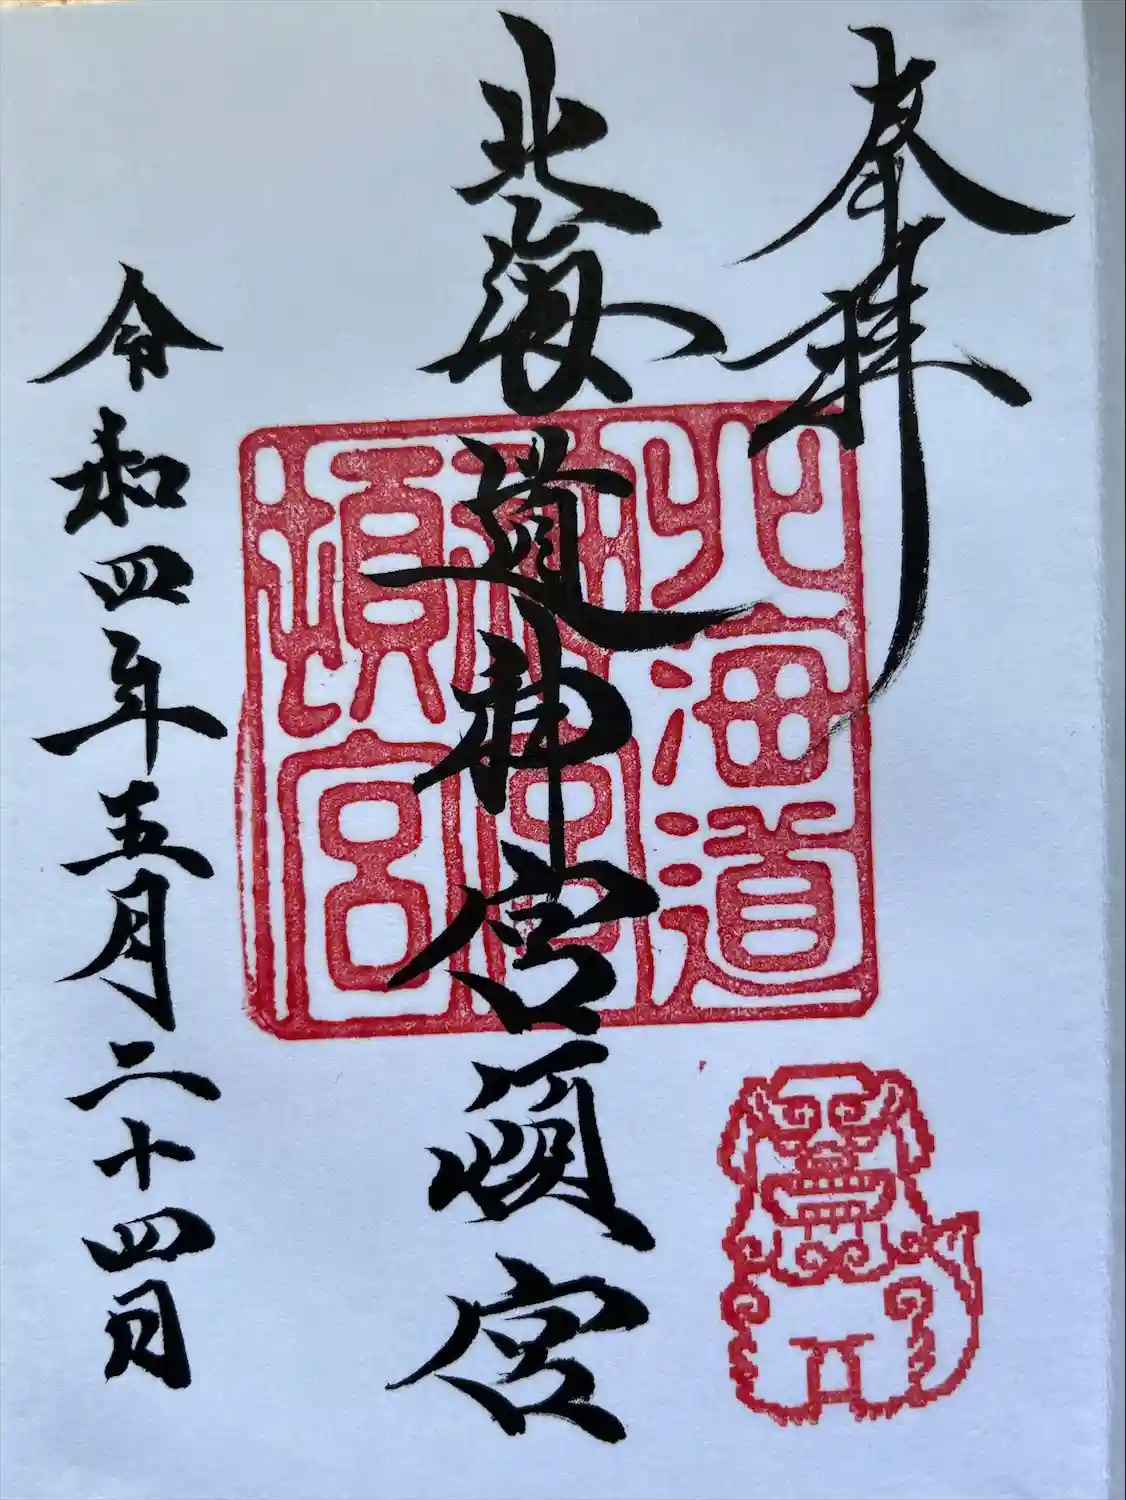 奉拝
北海道神宮頓宮
北海道
神宮
頓宮
令和四年五月二十四日